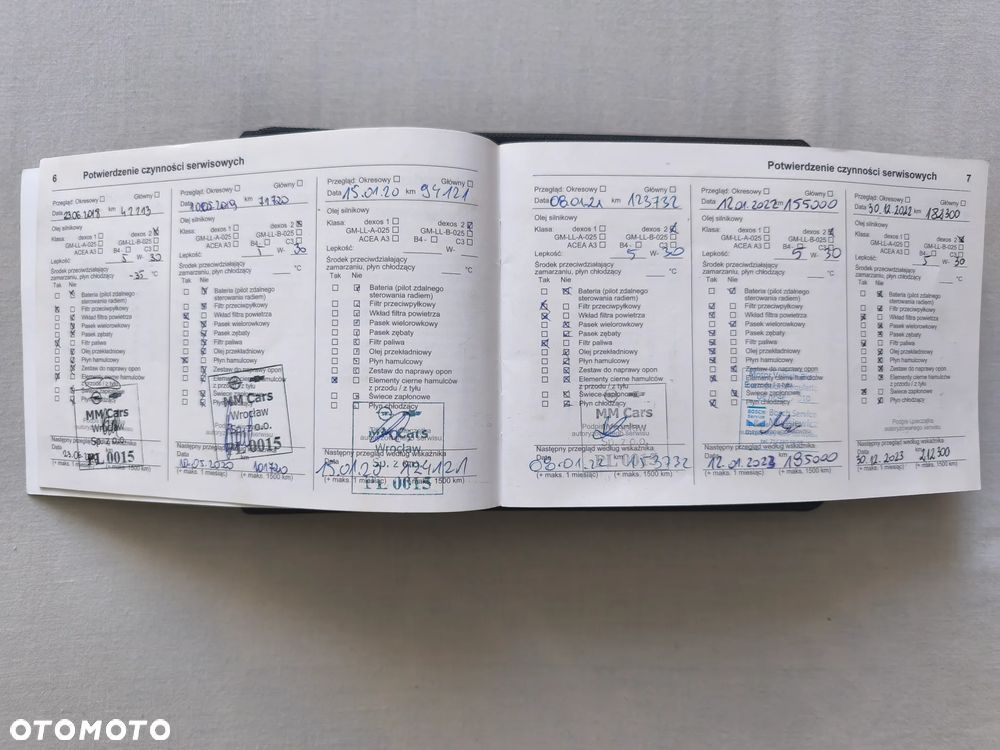 6 Potwierdzenie czynności serwisowych
Główny
Data 23.06.2018 km 42213
Olej silnikowy
Klasa: dexos 1 dexos 2
GM-LL-A-025 GM-LL-B-025
ACEA A3 B4 - C3
Lepkość: 5 W- 30
Środek przeciwdziałający
zamarzaniu, płyn chłodzący -35 °C
Tak Nie
Bateria (pilot zdalnego
sterowania radiem)
Filtr przeciwpyłkowy
Wkład filtra powietrza
Pasek wielorowkowy
Pasek zębaty
Filtr paliwa
Olej przekładniowy
Płyn hamulcowy
Zestaw do naprawy opon
Elementy cierne hamulców
z przodu / z tyłu
MM Cars
Wrocław
Sp. z o.o.
PL 0015
Data
(+ maks. 1 miesiąc) (+ maks. 1500 km)
Przegląd: Okresowy Główny
Data km 71720
Olej silnikowy
Klasa: dexos 1 dexos 2
GM-LL-A-025 GM-LL-B-025
ACEA A3 B4 - C3
Lepkość: 5 W- 30
Środek przeciwdziałający
zamarzaniu, płyn chłodzący °C
Tak Nie
Bateria (pilot zdalnego
sterowania radiem)
Filtr przeciwpyłkowy
Wkład filtra powietrza
Pasek wielorowkowy
Pasek zębaty
Filtr paliwa
Olej przekładniowy
Płyn hamulcowy
Zestaw do naprawy opon
Elementy cierne hamulców
MM Cars
Wrocław
Sp. z o.o.
PL 0015
Następny przegląd według wskaźnika
Data 10.05.2020 101720
(+ maks. 1 miesiąc) (+ maks. 1500 km)
Przegląd: Okresowy Główny
Data 15.01.20 km 94121
Olej silnikowy
Klasa: dexos 1 dexos 2
GM-LL-A-025 GM-LL-B-025
ACEA A3 B4 - C3
Lepkość: W-
Środek przeciwdziałający
zamarzaniu, płyn chłodzący °C
Tak Nie
Bateria (pilot zdalnego
sterowania radiem)
Filtr przeciwpyłkowy
Wkład filtra powietrza
Pasek wielorowkowy
Pasek zębaty
Filtr paliwa
Olej przekładniowy
Płyn hamulcowy
Zestaw do naprawy opon
Elementy cierne hamulców
z przodu / z tyłu
Świece zapłonowe
Płyn chłodzący
MM Cars
Wrocław
Sp. z o.o.
PL 0015
Następny przegląd według wskaźnika
Data 124121
(+ maks. 1 miesiąc) (+ maks. 1500 km)
Potwierdzenie czynności serwisowych 7
Przegląd: Okresowy Główny
Data 08.01.21 km 123732
Olej silnikowy
Klasa: dexos 1 dexos 2
GM-LL-A-025 GM-LL-B-025
ACEA A3 B4 - C3
Lepkość: 5 W- 30
Środek przeciwdziałający
zamarzaniu, płyn chłodzący °C
Tak Nie
Bateria (pilot zdalnego
sterowania radiem)
Filtr przeciwpyłkowy
Wkład filtra powietrza
Pasek wielorowkowy
Pasek zębaty
Filtr paliwa
Olej przekładniowy
Płyn hamulcowy
Zestaw do naprawy opon
Elementy cierne hamulców
z przodu / z tyłu
Świece zapłonowe
Płyn chłodzący
MM Cars
Sp. z o.o.
Następny przegląd według wskaźnika
Data 08.01.22 km 153732
(+ maks. 1 miesiąc) (+ maks. 1500 km)
Przegląd: Okresowy Główny
Data 12.01.2022 km 155000
Olej silnikowy
Klasa: dexos 1 dexos 2
GM-LL-A-025 GM-LL-B-025
ACEA A3 B4 - C3
Lepkość: 5 W- 30
Środek przeciwdziałający
zamarzaniu, płyn chłodzący °C
Tak Nie
Bateria (pilot zdalnego
sterowania radiem)
Filtr przeciwpyłkowy
Wkład filtra powietrza
Pasek wielorowkowy
Pasek zębaty
Filtr paliwa
Olej przekładniowy
Płyn hamulcowy
Zestaw do naprawy opon
Elementy cierne hamulców
z przodu / z tyłu
Świece zapłonowe
Płyn chłodzący
BOSCH
Service
Bosch Service
Następny przegląd według wskaźnika
Data 12.01.2023 km 185000
(+ maks. 1 miesiąc) (+ maks. 1500 km)
Przegląd: Okresowy Główny
Data 30.12.2022 km 182300
Olej silnikowy
Klasa: dexos 1 dexos 2
GM-LL-A-025 GM-LL-B-025
ACEA A3 B4 - C3
Lepkość: 5 W- 30
Środek przeciwdziałający
zamarzaniu, płyn chłodzący °C
Tak Nie
Bateria (pilot zdalnego
sterowania radiem)
Filtr przeciwpyłkowy
Wkład filtra powietrza
Pasek wielorowkowy
Pasek zębaty
Filtr paliwa
Olej przekładniowy
Płyn hamulcowy
Zestaw do naprawy opon
Elementy cierne hamulców
z przodu / z tyłu
Świece zapłonowe
Płyn chłodzący
Podpis i pieczątka
autoryzowanego serwisu
Następny przegląd według wskaźnika
Data km
30.12.2023 212300
(+ maks. 1 miesiąc) (+ maks. 1500 km)
OTOMOTO